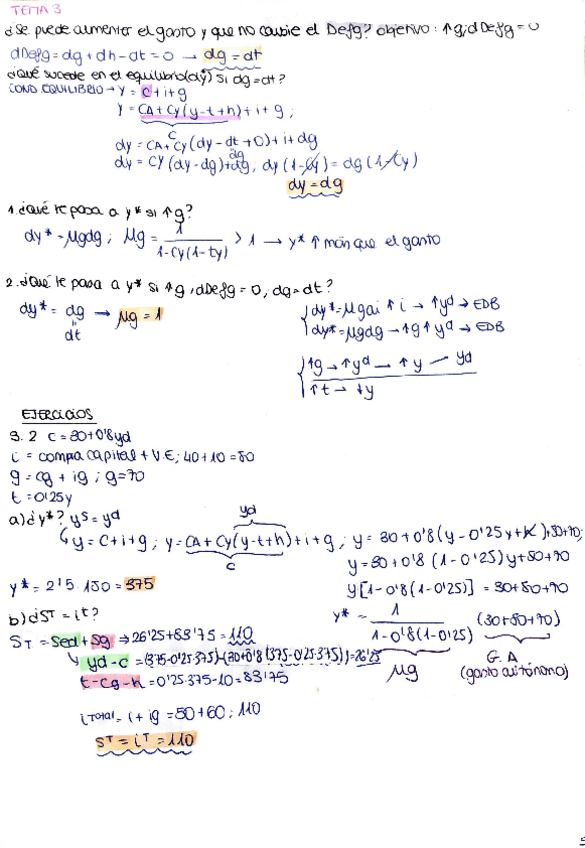 TEMA 3
¿Se puede aumentar el gasto y que no cambie el Defg? objetivo: ↑g; dDefg = 0
dDefg = dg + dh - dt = 0 → dg = dt
¿Qué sucede en el equilibrio (dy) si dg = dt?
COND EQUILIBRIO → Y = C + i + g
Y = CA + Cy (y - t + h) + i + g ;
C
dy = CA + Cy (dy - dt + 0) + i + dg
dg
dy = CY (dy - dg) + dg, dy (1 - Cy) = dg (1 - Cy)
dy = dg
1. ¿Qué le pasa a y* si ↑g?
dy* = μg dg ; μg = 1 / 1 - Cy (1 - ty) > 1 → y* ↑ más que el gasto
2. ¿Qué le pasa a y* si ↑g, dDefg = 0, dg = dt?
dy* = dg → μg = 1
dt
dy* = μg ai ↑ i → ↑yd → EDB
dy* = μg dg → ↑g ↑yd → EDB
↑g → ↑yd → ↑y — yd
↑t → ↓y
EJERCICIOS
3. 2 C = 30 + 0'8 yd
i = compra capital + V.E ; 40 + 10 = 50
g = cg + ig ; g = 70
t = 0'25 y
a) ¿y*? ys = yd
yd
y = C + i + g ; y = CA + Cy (y - t + h) + i + g ; y = 30 + 0'8 (y - 0'25 y + h) + 50 + 70;
C
y = 30 + 0'8 (1 - 0'25) y + 50 + 70
y [1 - 0'8 (1 - 0'25)] = 30 + 50 + 70
y* = 2'5 · 150 = 375
y* = 1 / 1 - 0'8 (1 - 0'25) (30 + 50 + 70)
μg
G.A
(gasto autónomo)
b) ¿ST = it?
ST = Sed + Sg ⇒ 26'25 + 83'75 = 110
yd - c = (375 - 0'25·375) - (30 + 0'8 (375 - 0'25·375)) = 26'25
t - cg - h = 0'25·375 - 10 = 83'75
iTotal = i + ig = 50 + 60 ; 110
ST = iT = 110